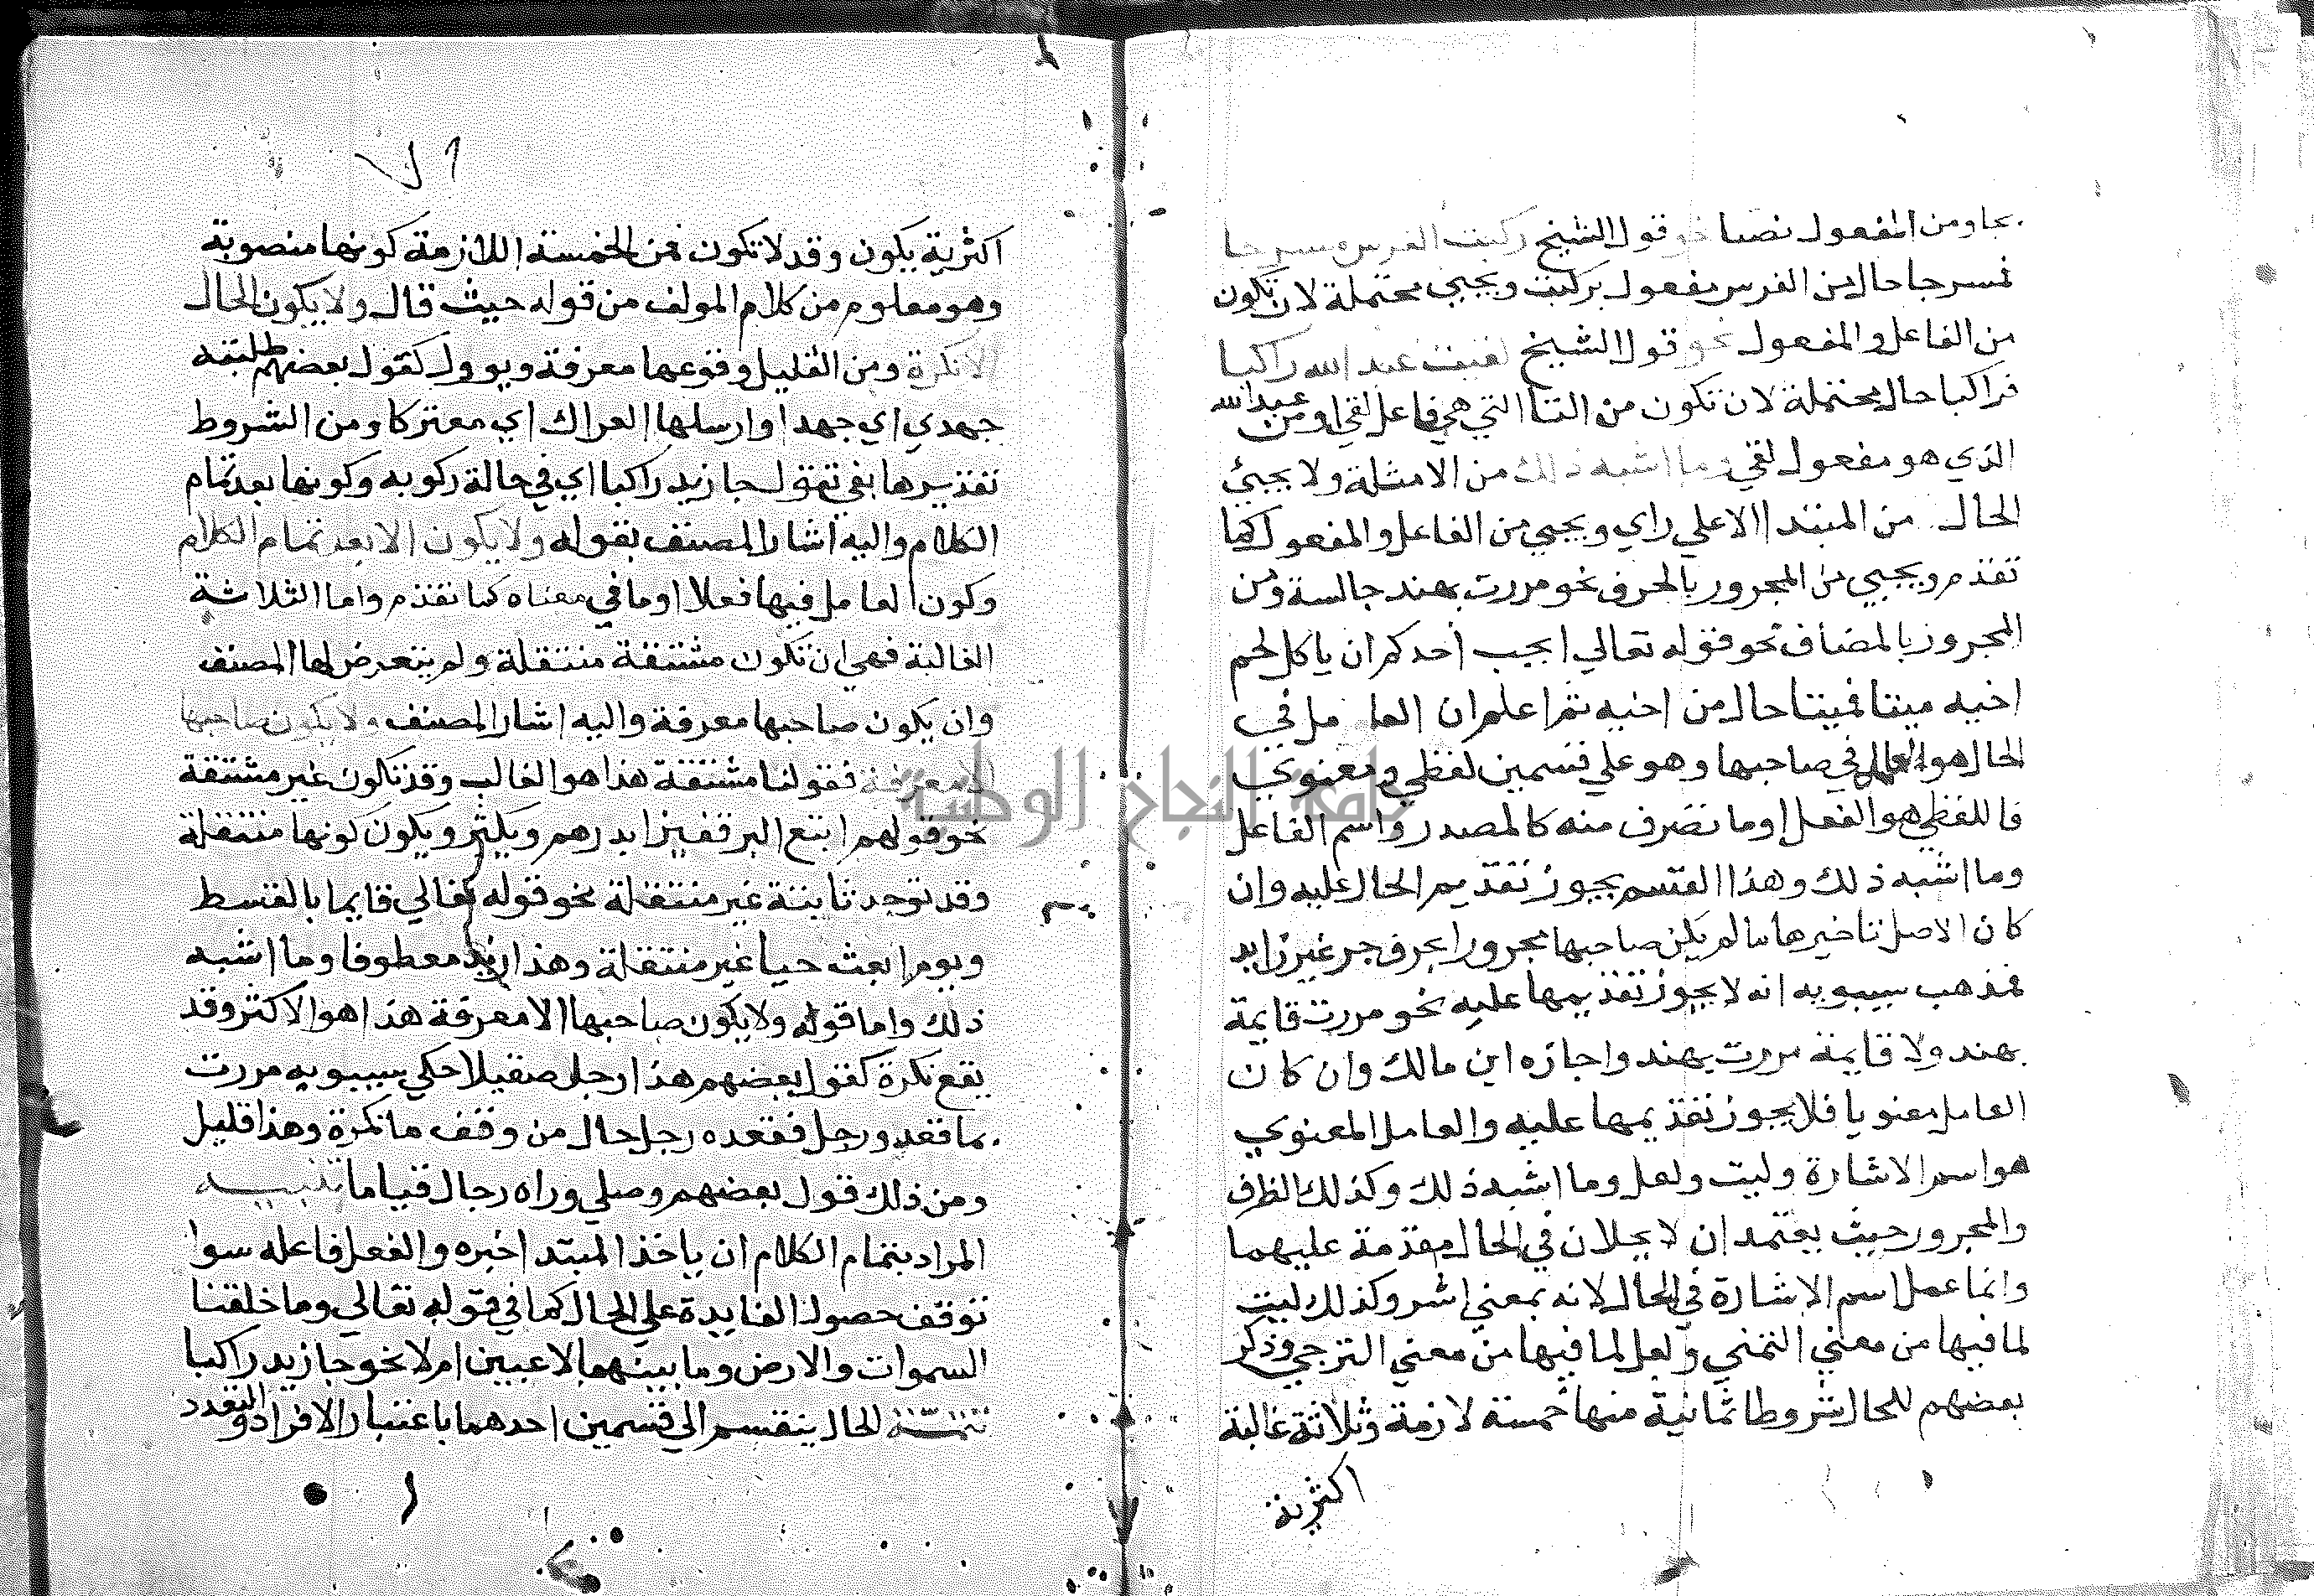 بجا ومن المفعول نصبا نحو قول الشيخ ركبت الفرس مسرجا
فمسرجا حال من الفرس مفعول بركبت ويجيي محتملة لان تكون
من الفاعل والمفعول نحو قول الشيخ لقيت عبد الله راكبا
فراكبا حال محتملة لان تكون من التا التي هي فاعل لقي او من عبد الله
الذي هو مفعول لقي وما اشبه ذلك من الامثلة ولا يجيئ
الحال من المبتدا الا علي راي ويجيي من الفاعل والمفعول كما
تقدم ويجيي من المجرور بالحرف نحو مررت بهند جالسة ومن
المجرور بالمضاف نحو قوله تعالي ايحب احدكم ان ياكل لحم
اخيه ميتا فميتا حال من اخيه ثم اعلم ان العامل في
الحال هو العامل في صاحبها وهو علي قسمين لفظي ومعنوي
فاللفظي هو الفعل او ما تصرف منه كالمصدر واسم الفاعل
وما اشبه ذلك وهذا القسم يجوز تقديم الحال عليه وان
كان الاصل تاخيرها ما لم يكن صاحبها مجرورا بحرف جر غير زايد
فمذهب سيبويه انه لا يجوز تقديمها عليه نحو مررت قايمة
بهند ولا قايمة مررت بهند واجازه ابن مالك وان كان
العامل معنويا فلا يجوز تقديمها عليه والعامل المعنوي
هو اسم الاشارة وليت ولعل وما اشبه ذلك وكذلك الظرف
والمجرور حيث يعتمدان لا يجلان في الحال مقدمة عليهما
وانما عمل اسم الاشارة في الحال لانه بمعني اشر وكذلك ليت
لما فيها من معني التمني ولعل لما فيها من معني الترجي وذكر
بعضهم للحال شروطا ثمانية منها خمسة لازمة وثلاثة غالبة
اكثرية
اكثرية يكون وقد لا تكون فمن الخمسة اللازمة كونها منصوبة
وهو معلوم من كلام المولف من قوله حيث قال ولا يكون الحال
الا نكرة ومن القليل وقوعها معرفة ويوول كقول بعضهم طلبته
جهدي اي جهدا وارسلها العراك اي معتركا ومن الشروط
تقديرها بفي تقول جا زيد راكبا اي في حالة ركوبه وكونها بعد تمام
الكلام واليه اشار المصنف بقوله ولا يكون الا بعد تمام الكلام
وكون العامل فيها فعلا او ما في معناه كما تقدم واما الثلاثة
الغالبة فهي ان تكون مشتقة منتقلة ولم يتعرض لها المصنف
وان يكون صاحبها معرفة واليه اشار المصنف ولا يكون صاحبها
الا معرفة فقولنا مشتقة هذا هو الغالب وقد تكون غير مشتقة
نحو قولهم ابتع البر قفيزا بدرهم ويكثر ويكون كونها منتقلة
وقد توجد ثابتة غير منتقلة نحو قوله تعالي قايما بالقسط
ويوم ابعث حيا غير منتقلة وهذا زيد معطوفا وما اشبه
ذلك واما قوله ولا يكون صاحبها الا معرفة هذا هو الاكثر وقد
يقع نكرة كقول بعضهم هذا رجل مقبلا حكي سيبويه مررت
بما قعد ورجل فقعده رجل حال من وقف ها نكرة وهذا قليل
ومن ذلك قول بعضهم وصلي وراه رجال قياما تنبيه
المراد بتمام الكلام ان ياخذ المبتدا خبره والفعل فاعله سوا
توقف حصول الفايدة علي الحال كما في قوله تعالي وما خلقنا
السموات والارض وما بينهما لاعبين ام لا نحو جا زيد راكبا
تتمة الحال ينقسم الي قسمين احدهما باعتبار الافراد والتعدد
جامعة النجاح الوطنية